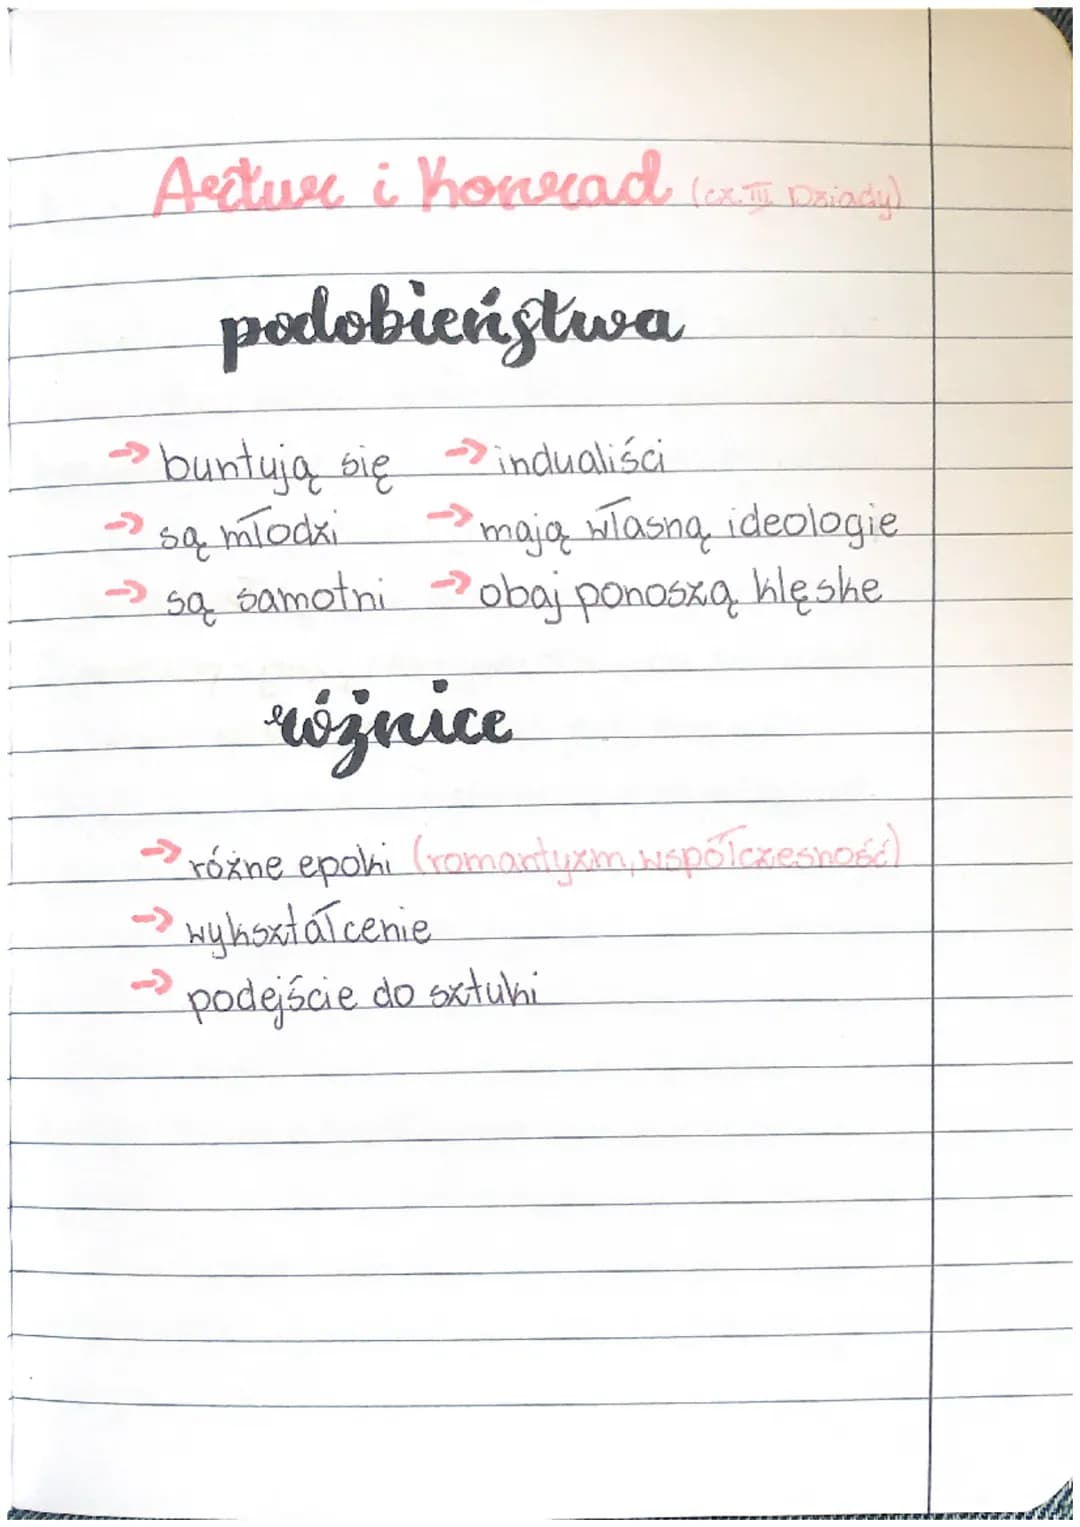 Artur i Konrad (cz. III Dziady)
podobieństwa
→ buntują się → indualiści
→ są młodzi → mają własną ideologie
→ są samotni → obaj ponoszą klęske
różnice
→ różne epoki (romantyzm, współczesność)
→ wykształcenie
→ podejście do sztuki